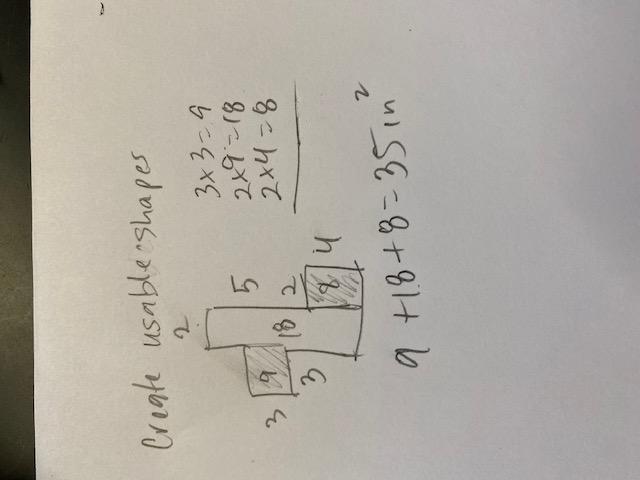 Create usable shapes
2
3 9 18 5
3 2 8 4
3x3=9
2x9=18
2x4=8
9+18+8=35in²